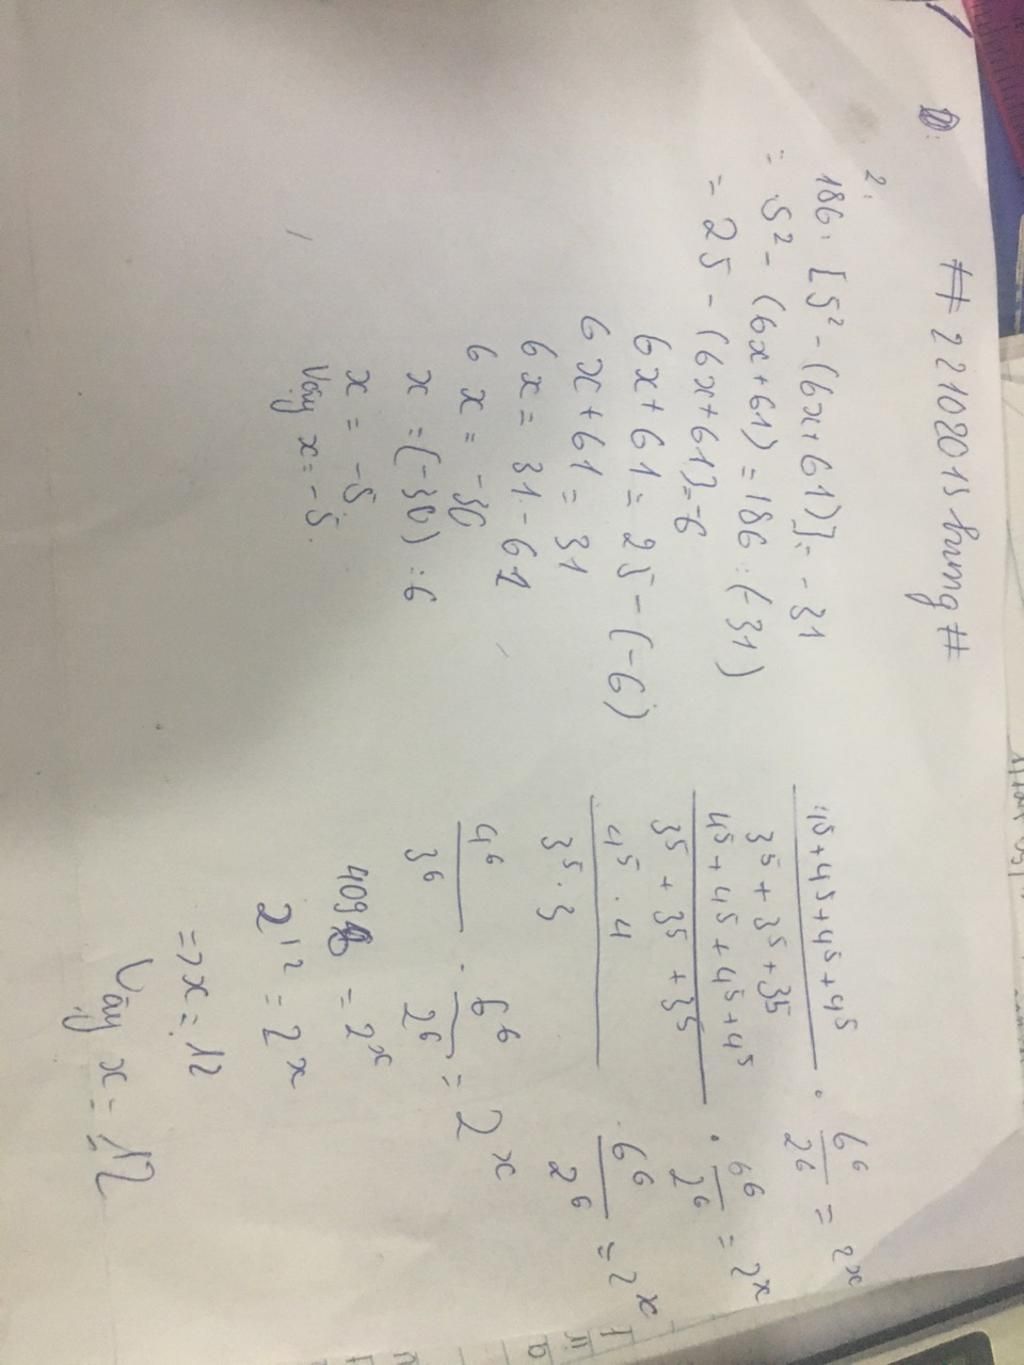 # 221082013hung #
2:
186 : [5² - (6x + 61)] = -31
= 5² - (6x + 61) = 186 : (-31)
= 25 - (6x + 61) = 6
6x + 61 = 25 - (-6)
6x + 61 = 31
6x = 31 - 61
6x = -30
x = (-30) : 6
x = -5
Vậy x = -5.
4⁵ + 4⁵ + 4⁵ + 4⁵ / 3⁵ + 3⁵ + 3⁵ . 6⁶ / 2⁶ = 2ˣ
4⁵ + 4⁵ + 4⁵ + 4⁵ / 3⁵ + 3⁵ + 3⁵ . 6⁶ / 2⁶ = 2ˣ
4⁵ . 4 / 3⁵ . 3 . 6⁶ / 2⁶ = 2ˣ
4⁶ / 3⁶ . 6⁶ / 2⁶ = 2ˣ
4096 = 2ˣ
2¹² = 2ˣ
=> x = 12
Vậy x = 12